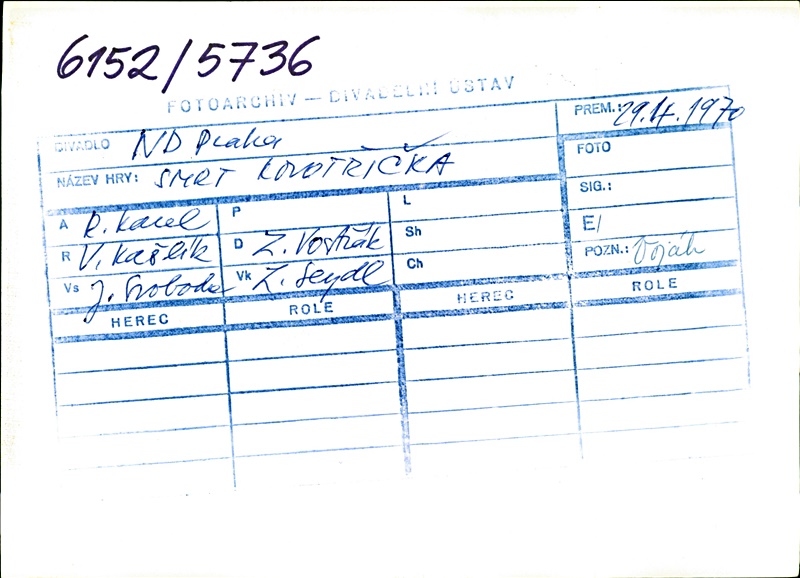 6152/5736
FOTOARCHIV — DIVADELNÍ ÚSTAV
DIVADLO ND Praha
PREM.: 29.4.1970
NÁZEV HRY: SMRT KMOTŘIČKA
FOTO
A R. Karel
P
L
SIG.:
R V. Kašlík
D Z. Vostřák
Sh
E/
Vs J. Svoboda
Vk Z. Seydl
Ch
POZN.: Voják
HEREC ROLE HEREC ROLE